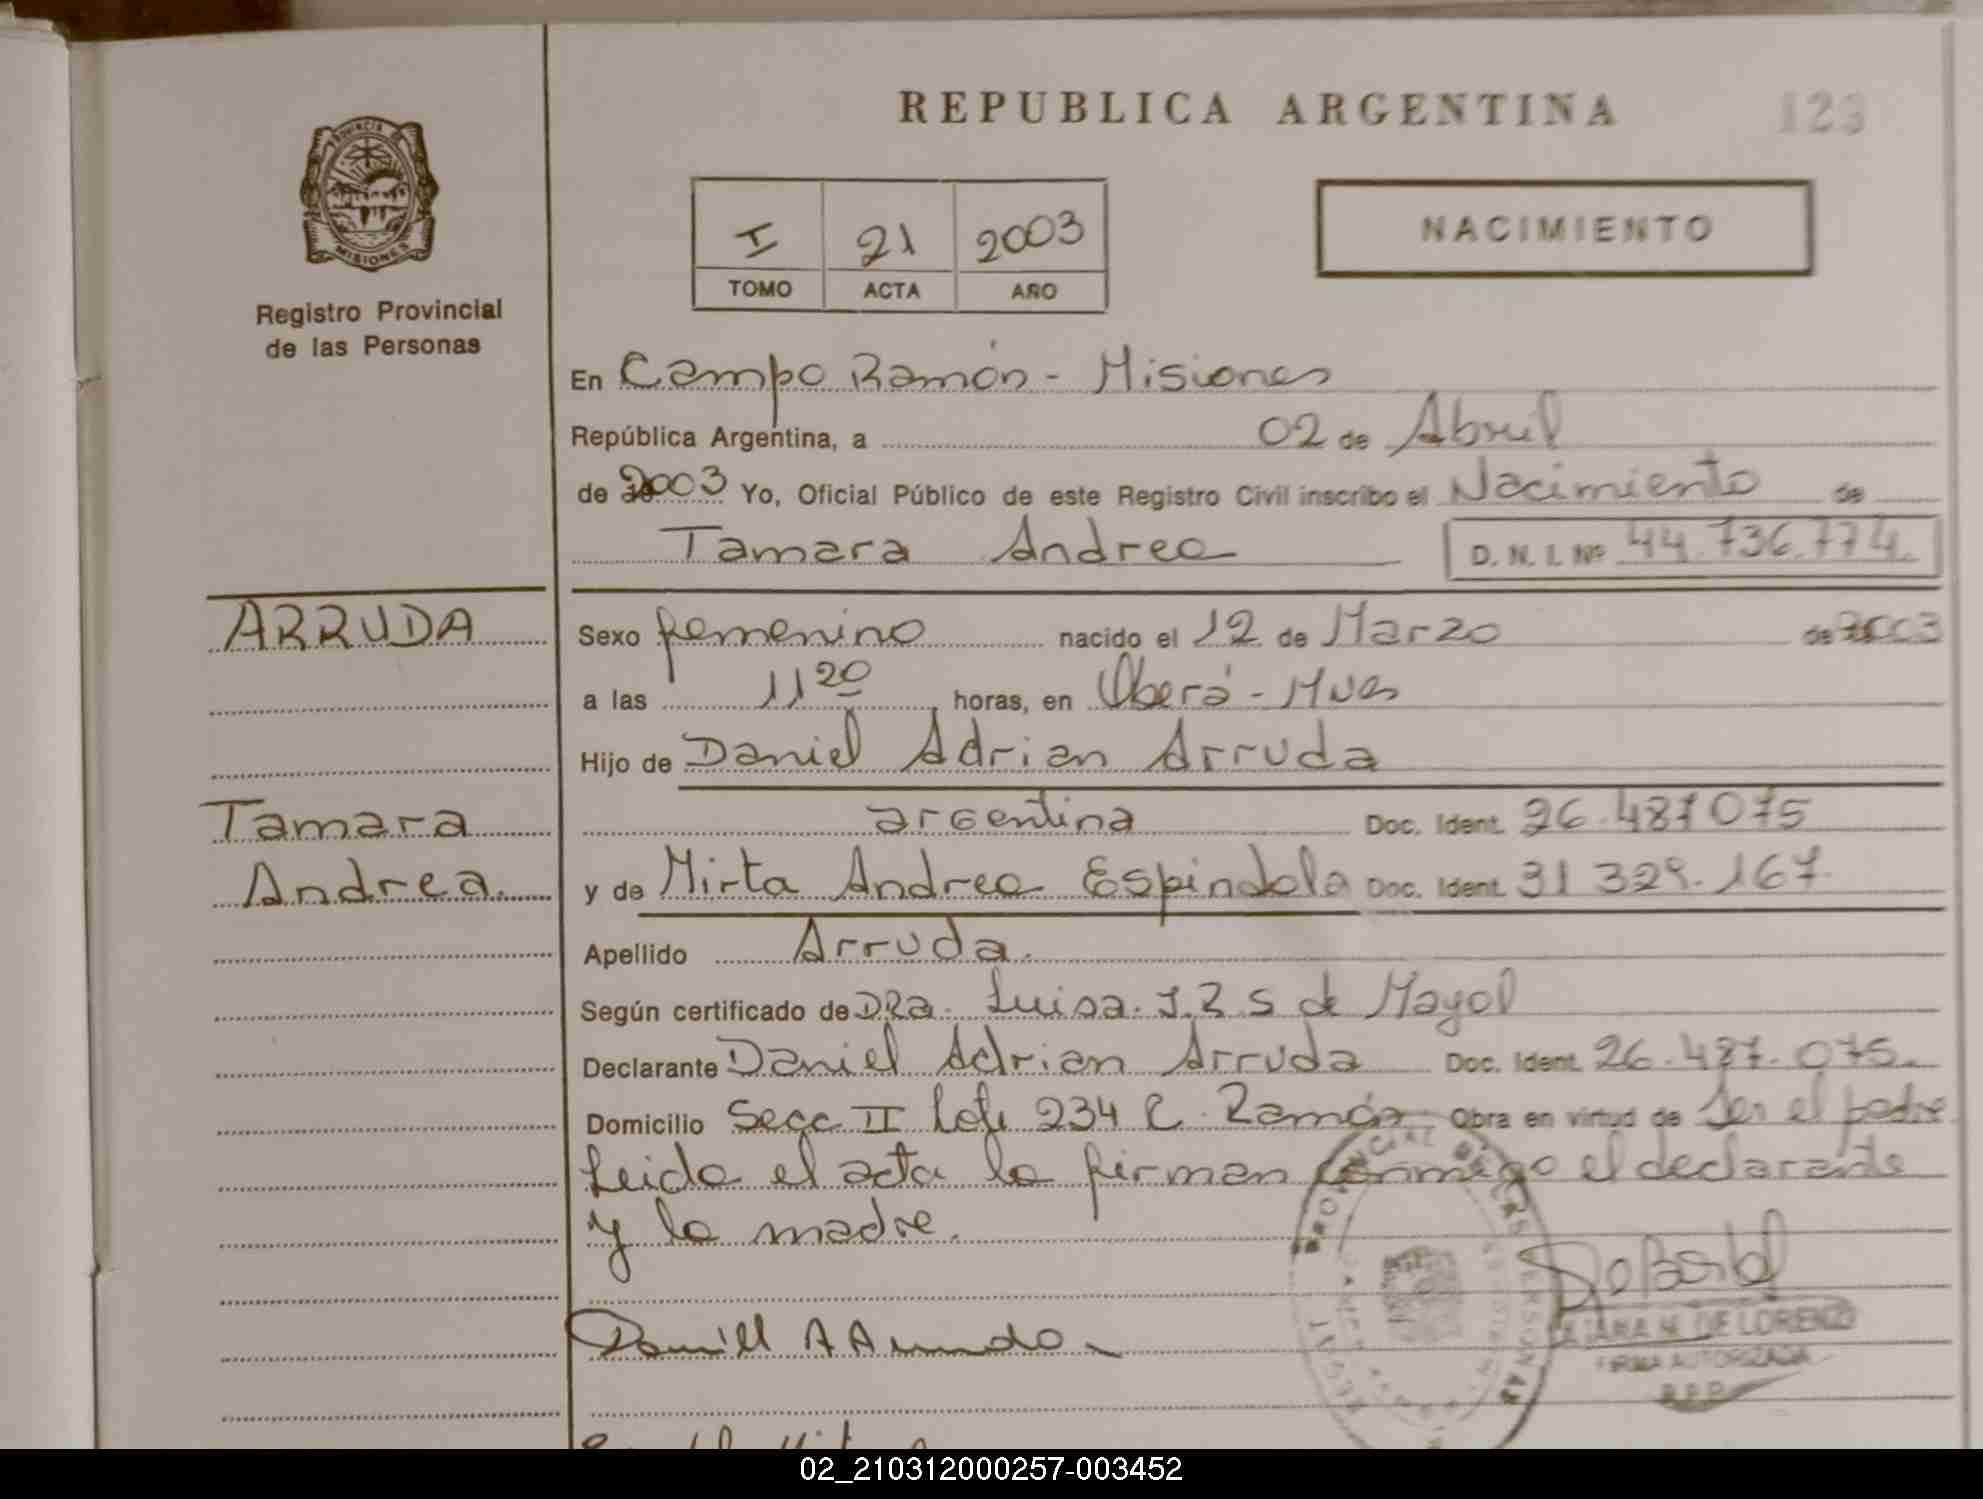 REPUBLICA ARGENTINA
123
PROVINCIA DE
MISIONES
Registro Provincial
de las Personas
I 21 2003
TOMO ACTA AÑO
NACIMIENTO
En Campo Ramón - Misiones
República Argentina, a 02 de Abril
de 2003 Yo, Oficial Público de este Registro Civil inscribo el Nacimiento de
Tamara Andrea D. N. I. Nº 44.736.774.
ARRUDA
Sexo femenino nacido el 12 de Marzo de 2003
a las 11 20 horas, en Oberá - Mnes
Hijo de Daniel Adrian Arruda
Tamara
argentina Doc. Ident. 26.487075
Andrea.
y de Mirta Andrea Espindola Doc. Ident. 31 329.167.
Apellido Arruda.
Según certificado de DRa. Luisa. J. R. S de Mayol
Declarante Daniel Adrian Arruda Doc. Ident. 26.487.075.
Domicilio Secc II Lote 234 C. Ramón Obra en virtud de Ser el padre
Leida el acta la firman conmigo el declarante
y la madre.
DE LORENZO
FIRMA AUTORIZADA
R.P.P.
Daniel A Arruda
02_210312000257-003452